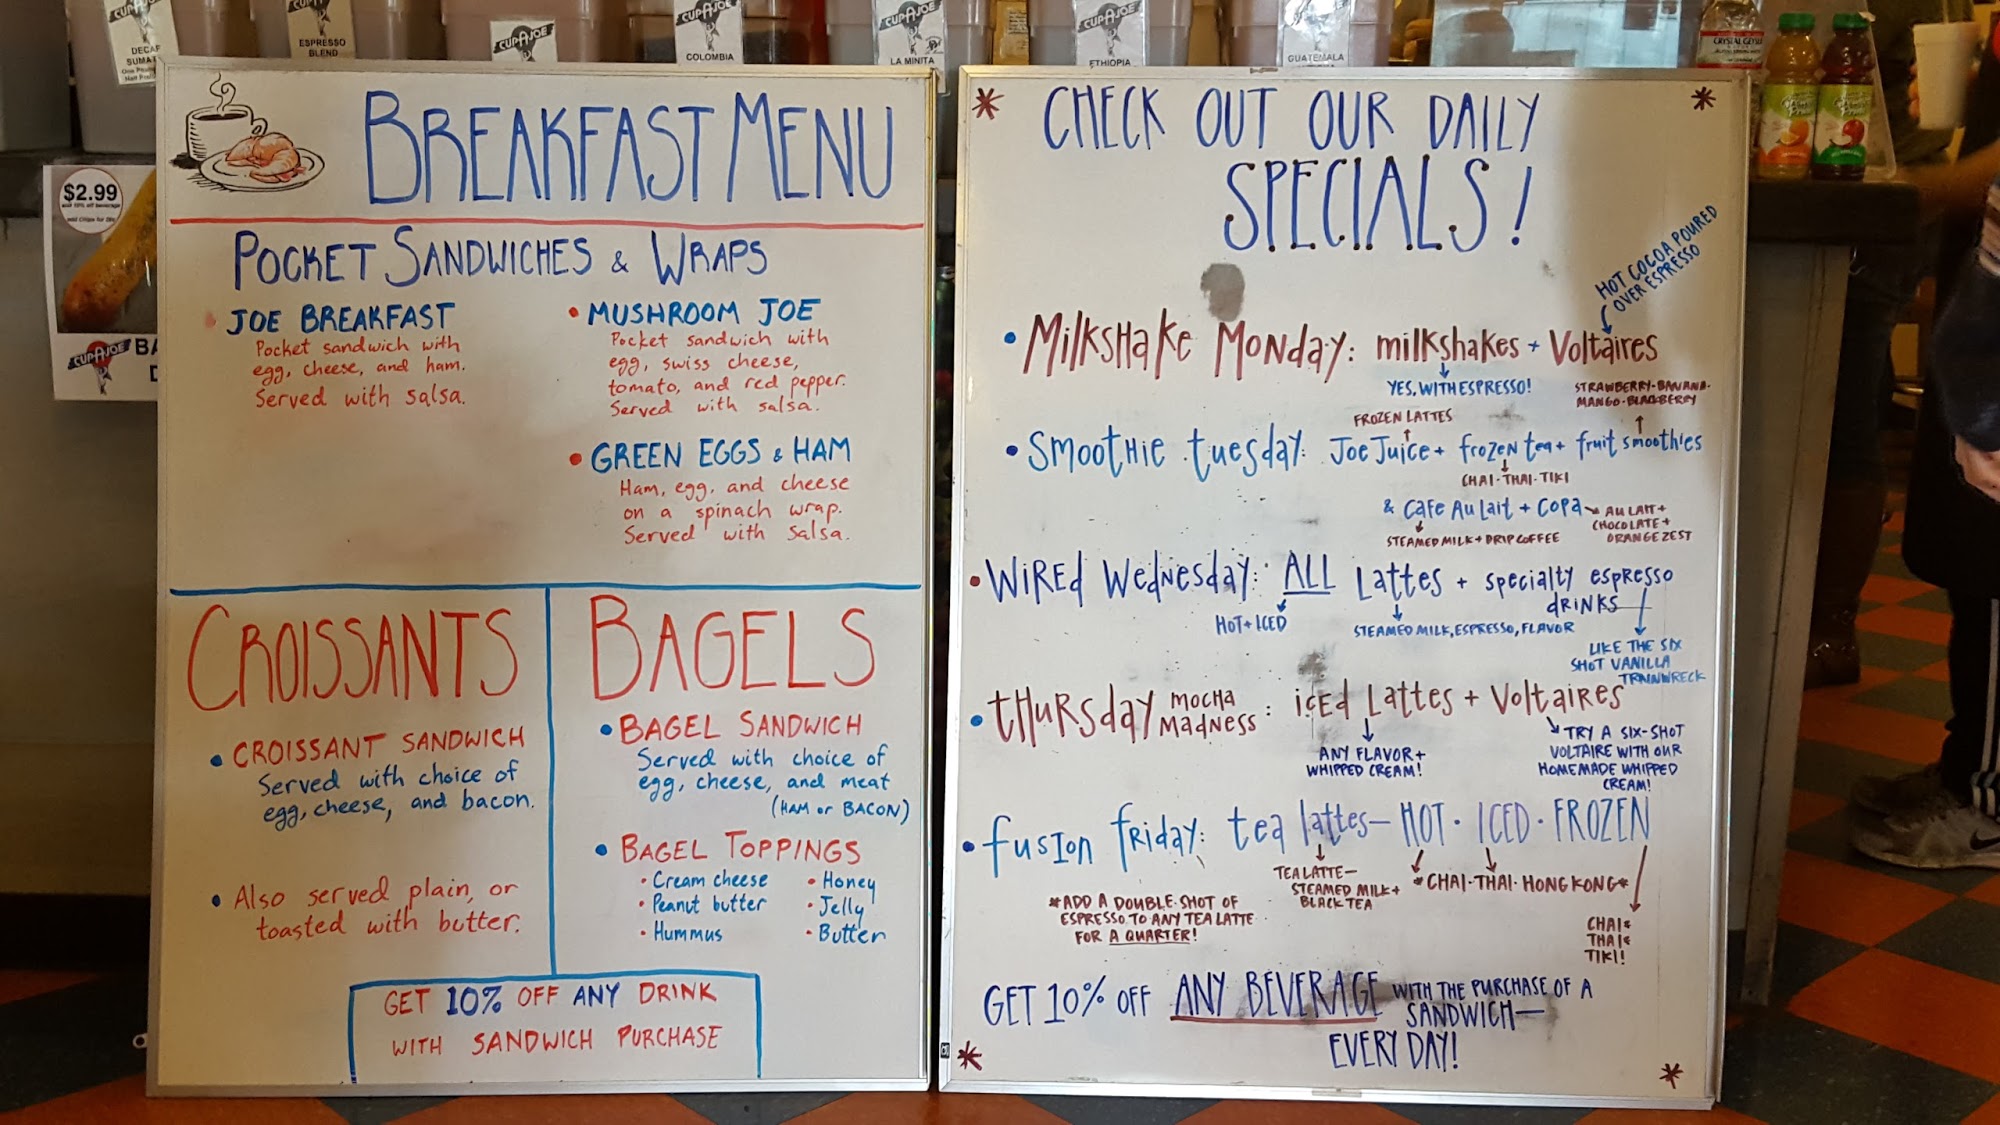 DECAF
ESPRESSO
BLEND
CUP A JOE
CUP A JOE
COLOMBIA
CUP A JOE
LA MINITA
CUP A JOE
ETHIOPIA
CUP A JOE
GUATEMALA
CRYSTAL GEYSER
$2.99
CUP A JOE
BREAKFAST MENU
POCKET SANDWICHES & WRAPS
• JOE BREAKFAST
Pocket sandwich with
egg, cheese, and ham.
Served with salsa.
• MUSHROOM JOE
Pocket sandwich with
egg, swiss cheese,
tomato, and red pepper.
Served with salsa.
• GREEN EGGS & HAM
Ham, egg, and cheese
on a spinach wrap.
Served with salsa.
CROISSANTS
• CROISSANT SANDWICH
Served with choice of
egg, cheese, and bacon.
• Also served plain, or
toasted with butter.
BAGELS
• BAGEL SANDWICH
Served with choice of
egg, cheese, and meat
(HAM or BACON)
• BAGEL TOPPINGS
• Cream cheese
• Peanut butter
• Hummus
• Honey
• Jelly
• Butter
GET 10% OFF ANY DRINK
WITH SANDWICH PURCHASE
* CHECK OUT OUR DAILY *
SPECIALS!
HOT COCOA POURED
OVER ESPRESSO
• MilksHake Monday: milkshakes + Voltaires
YES, WITH ESPRESSO!
STRAWBERRY-BANANA-
MANGO-BLACKBERRY
FROZEN LATTES
• Smoothie tuesday: Joe Juice + frozen tea + fruit smoothies
CHAI-THAI-TIKI
& Cafe Au Lait + COPA
AU LAIT +
CHOCOLATE +
ORANGE ZEST
STEAMED MILK + DRIP COFFEE
• WiRed Wednesday: ALL Lattes + specialty espresso
dRiNKS
HOT + ICED
STEAMED MILK, ESPRESSO, FLAVOR
LIKE THE SIX
SHOT VANILLA
TRAINWRECK
• tHuRsday MOCHA MadNess: icEd Lattes + Voltaires
ANY FLAVOR +
WHIPPED CREAM!
TRY A SIX-SHOT
VOLTAIRE WITH OUR
HOMEMADE WHIPPED
CREAM!
• fusion friday: tea lattes— HOT • ICED • FROZEN
TEA LATTE—
STEAMED MILK +
BLACK TEA
*CHAI • THAI • HONG KONG*
*ADD A DOUBLE SHOT OF
ESPRESSO TO ANY TEA LATTE
FOR A QUARTER!
CHAI*
THAI*
TIKI!
GET 10% OFF ANY BEVERAGE WITH THE PURCHASE OF A
SANDWICH—
EVERY DAY!